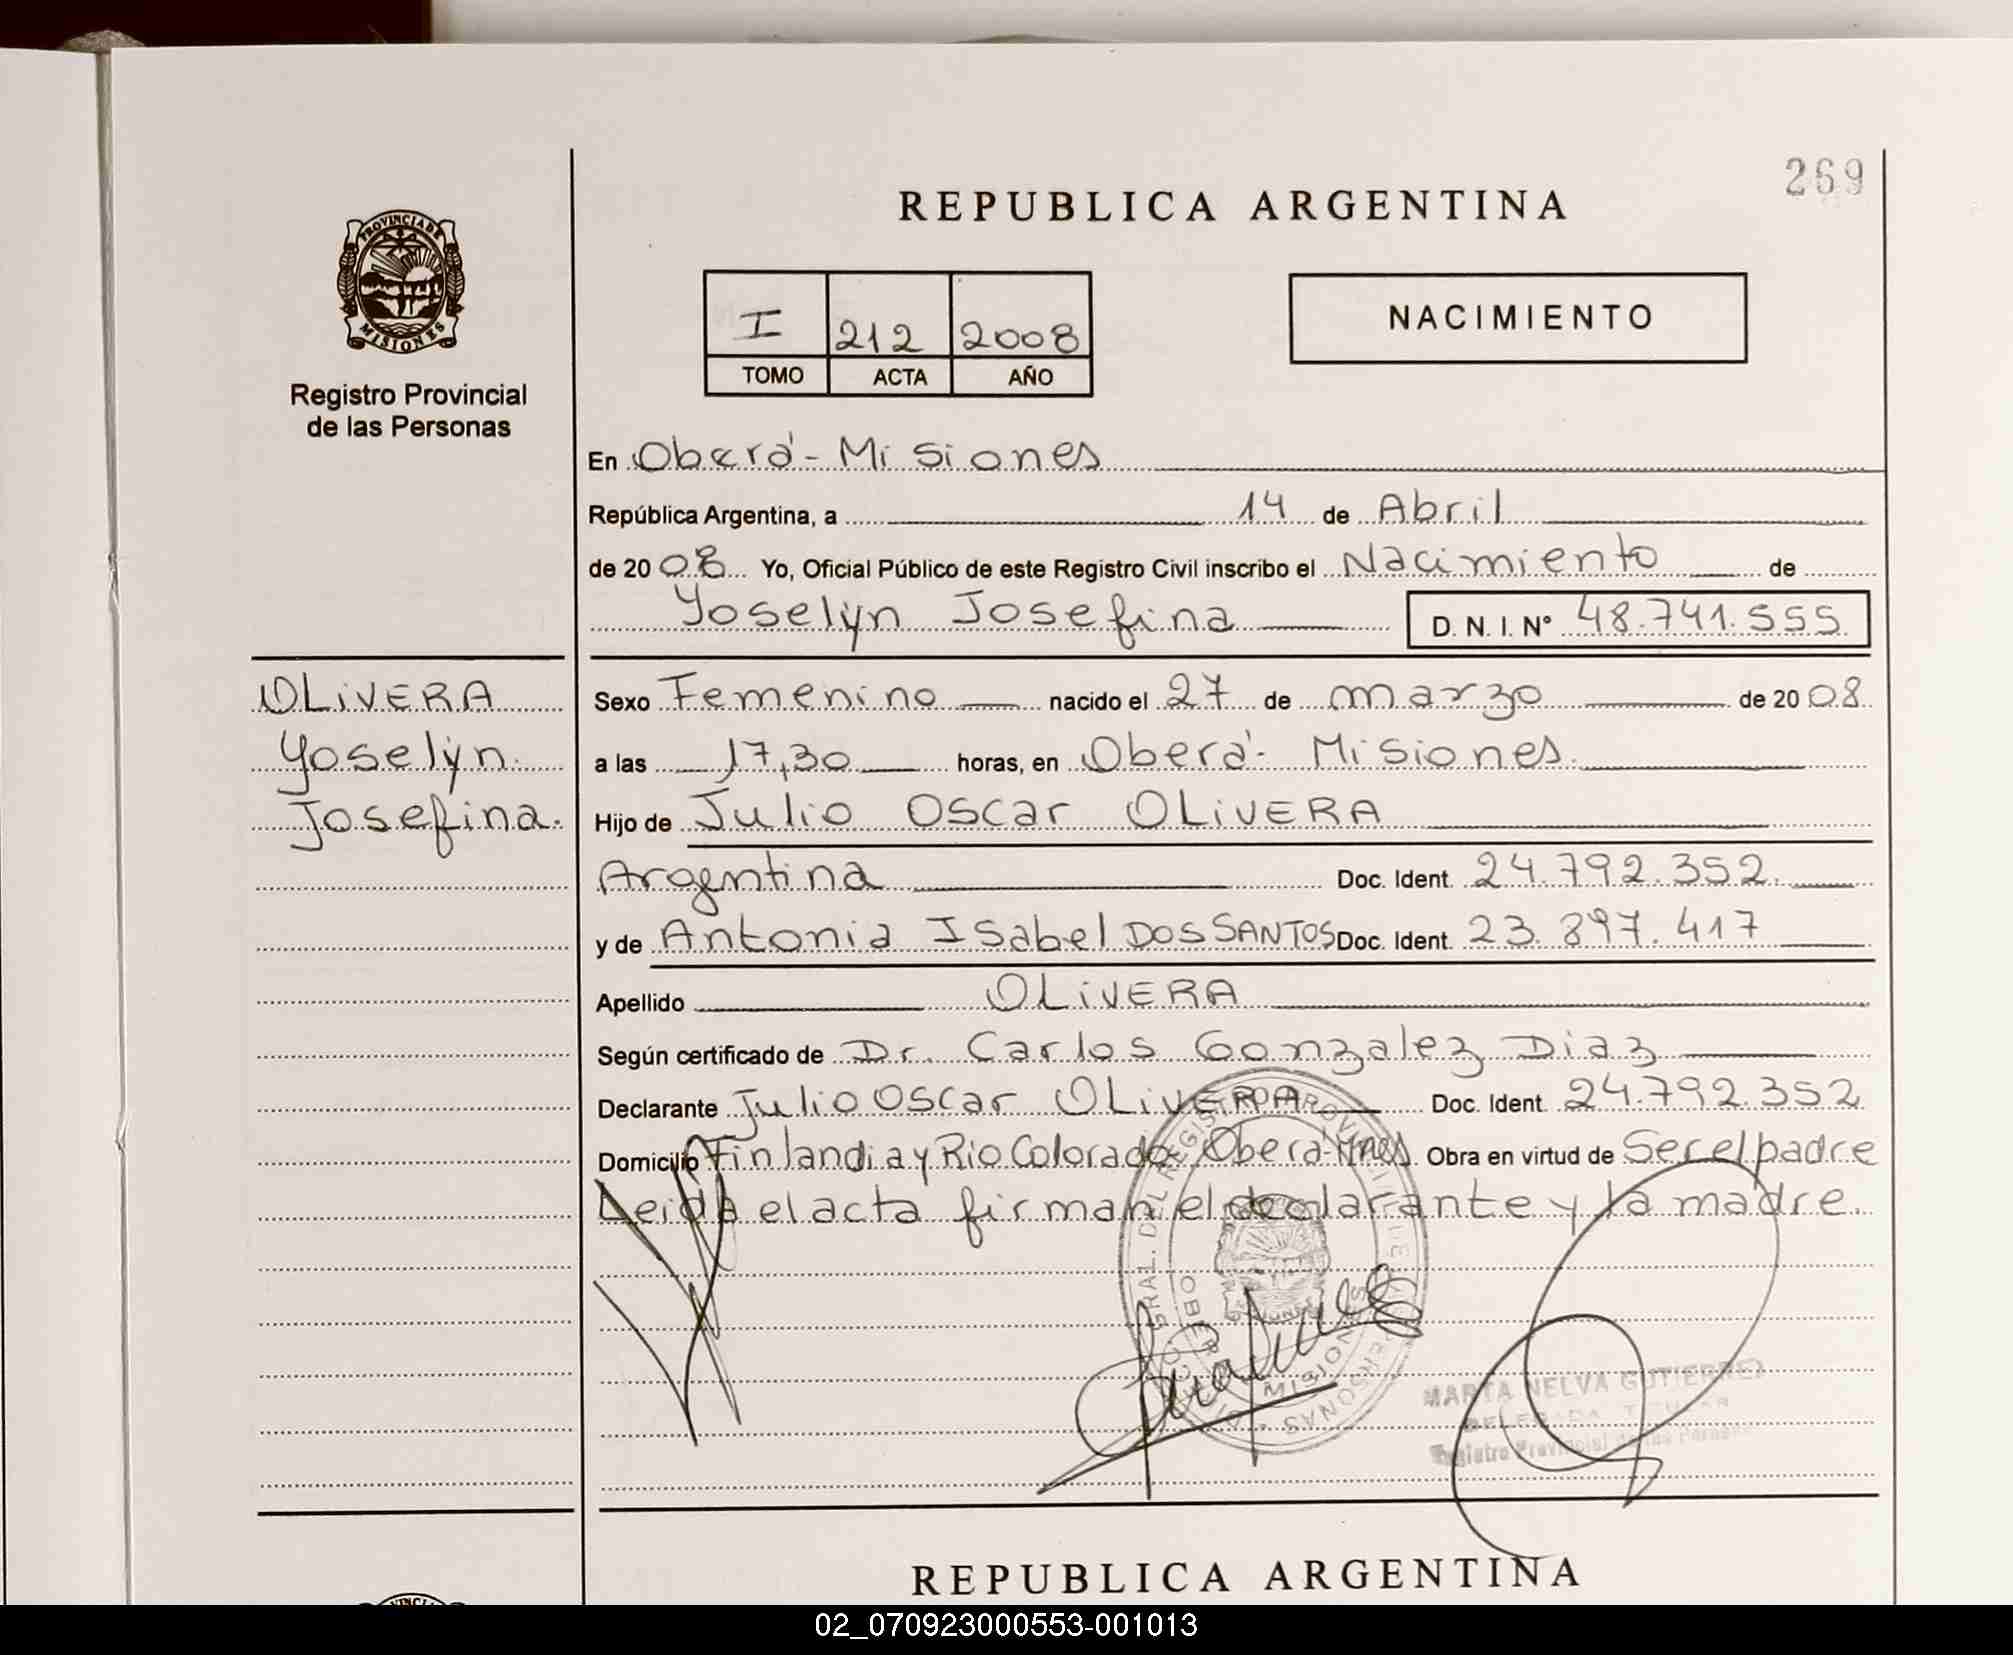 269
REPUBLICA ARGENTINA
PROVINCIA DE
MISIONES
Registro Provincial
de las Personas
I 212 2008
TOMO ACTA AÑO
NACIMIENTO
En Oberá - Misiones
República Argentina, a 14 de Abril
de 2008 Yo, Oficial Público de este Registro Civil inscribo el Nacimiento de
Yoselyn Josefina D. N. I. N° 48.741.555
OLIVERA
Yoselyn
Josefina.
Sexo Femenino nacido el 27 de marzo de 2008
a las 17,30 horas, en Oberá - Misiones.
Hijo de Julio Oscar OLIVERA
Argentina Doc. Ident. 24.792.352.
y de Antonia Isabel DOS SANTOS Doc. Ident. 23.897.417
Apellido OLIVERA
Según certificado de Dr. Carlos Gonzalez Diaz
Declarante Julio Oscar OLIVERA Doc. Ident. 24.792.352
Domicilio Finlandia y Rio Colorado - Oberá - Mnes Obra en virtud de Ser el padre
Leida el acta firman el declarante y la madre.
MISIONES
MARTA NELVA GUTIERREZ
DELEGADA TITULAR
Registro Provincial de las Personas
REPUBLICA ARGENTINA
02_070923000553-001013